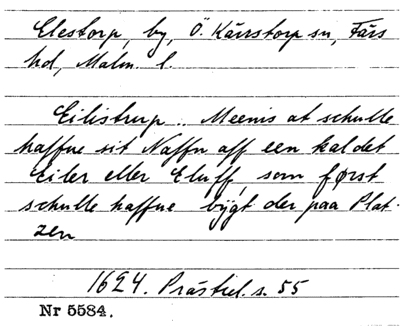 Elestorp, by, Ö. Kärrstorp sn, Färs
hd, Malm. l.
Eilistrup. Meenis at schulle
haffue sit Naffn aff een kaldet
Eiler eller Eluff, som først
schulle haffue bÿgt der paa Plat-
zen
1624. Prästrel. s. 55
Nr 5584.